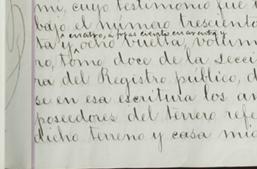 mi, cuyo testimonio fue
bajo el número tresciento
cuatro, a fojas ciento cuarenta y
ta y ocho vuelta, volum
ro, tomo doce de la Secci
ra del Registro público, d
se en esa escritura los an
poseedores del terreno refe
dicho terreno y casa mia